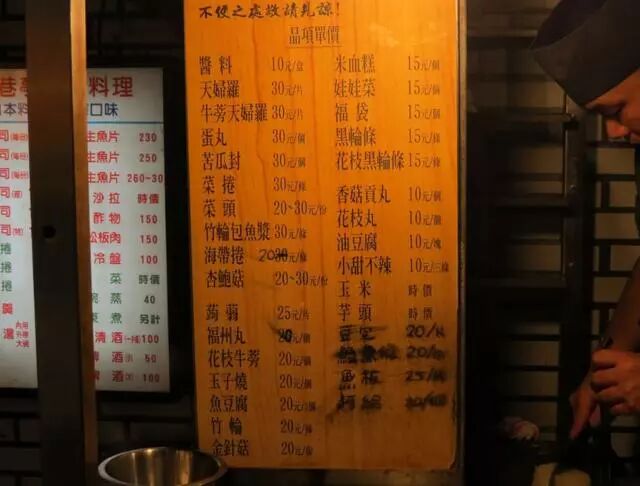 不便之處敬請見諒!
品項單價
醬料 10元/盒
天婦羅 30元/片
牛蒡天婦羅 30元/片
蛋丸 30元/個
苦瓜封 30元/個
菜捲 30元/條
菜頭 20~30元/份
竹輪包魚漿 30元/條
海帶捲 20元/條
杏鮑菇 20~30元/份
蒟蒻 25元/片
福州丸 20元/個
花枝牛蒡 20元/個
玉子燒 20元/個
魚豆腐 20元/個
竹輪 20元/條
金針菇 20元/份
米血糕 15元/個
娃娃菜 15元/個
福袋 15元/個
黑輪條 15元/條
花枝黑輪條 15元/條
香菇貢丸 10元/個
花枝丸 10元/個
油豆腐 10元/塊
小甜不辣 10元/三條
玉米 時價
芋頭 時價
20/
魚板 25/
料理
口味
生魚片 230
生魚片 250
生魚片 260~30
沙拉 時價
酢物 150
松板肉 150
冷盤 100
菜 時價
蒸 40
煮 另計
清酒 100
啤酒 50
啤酒 100